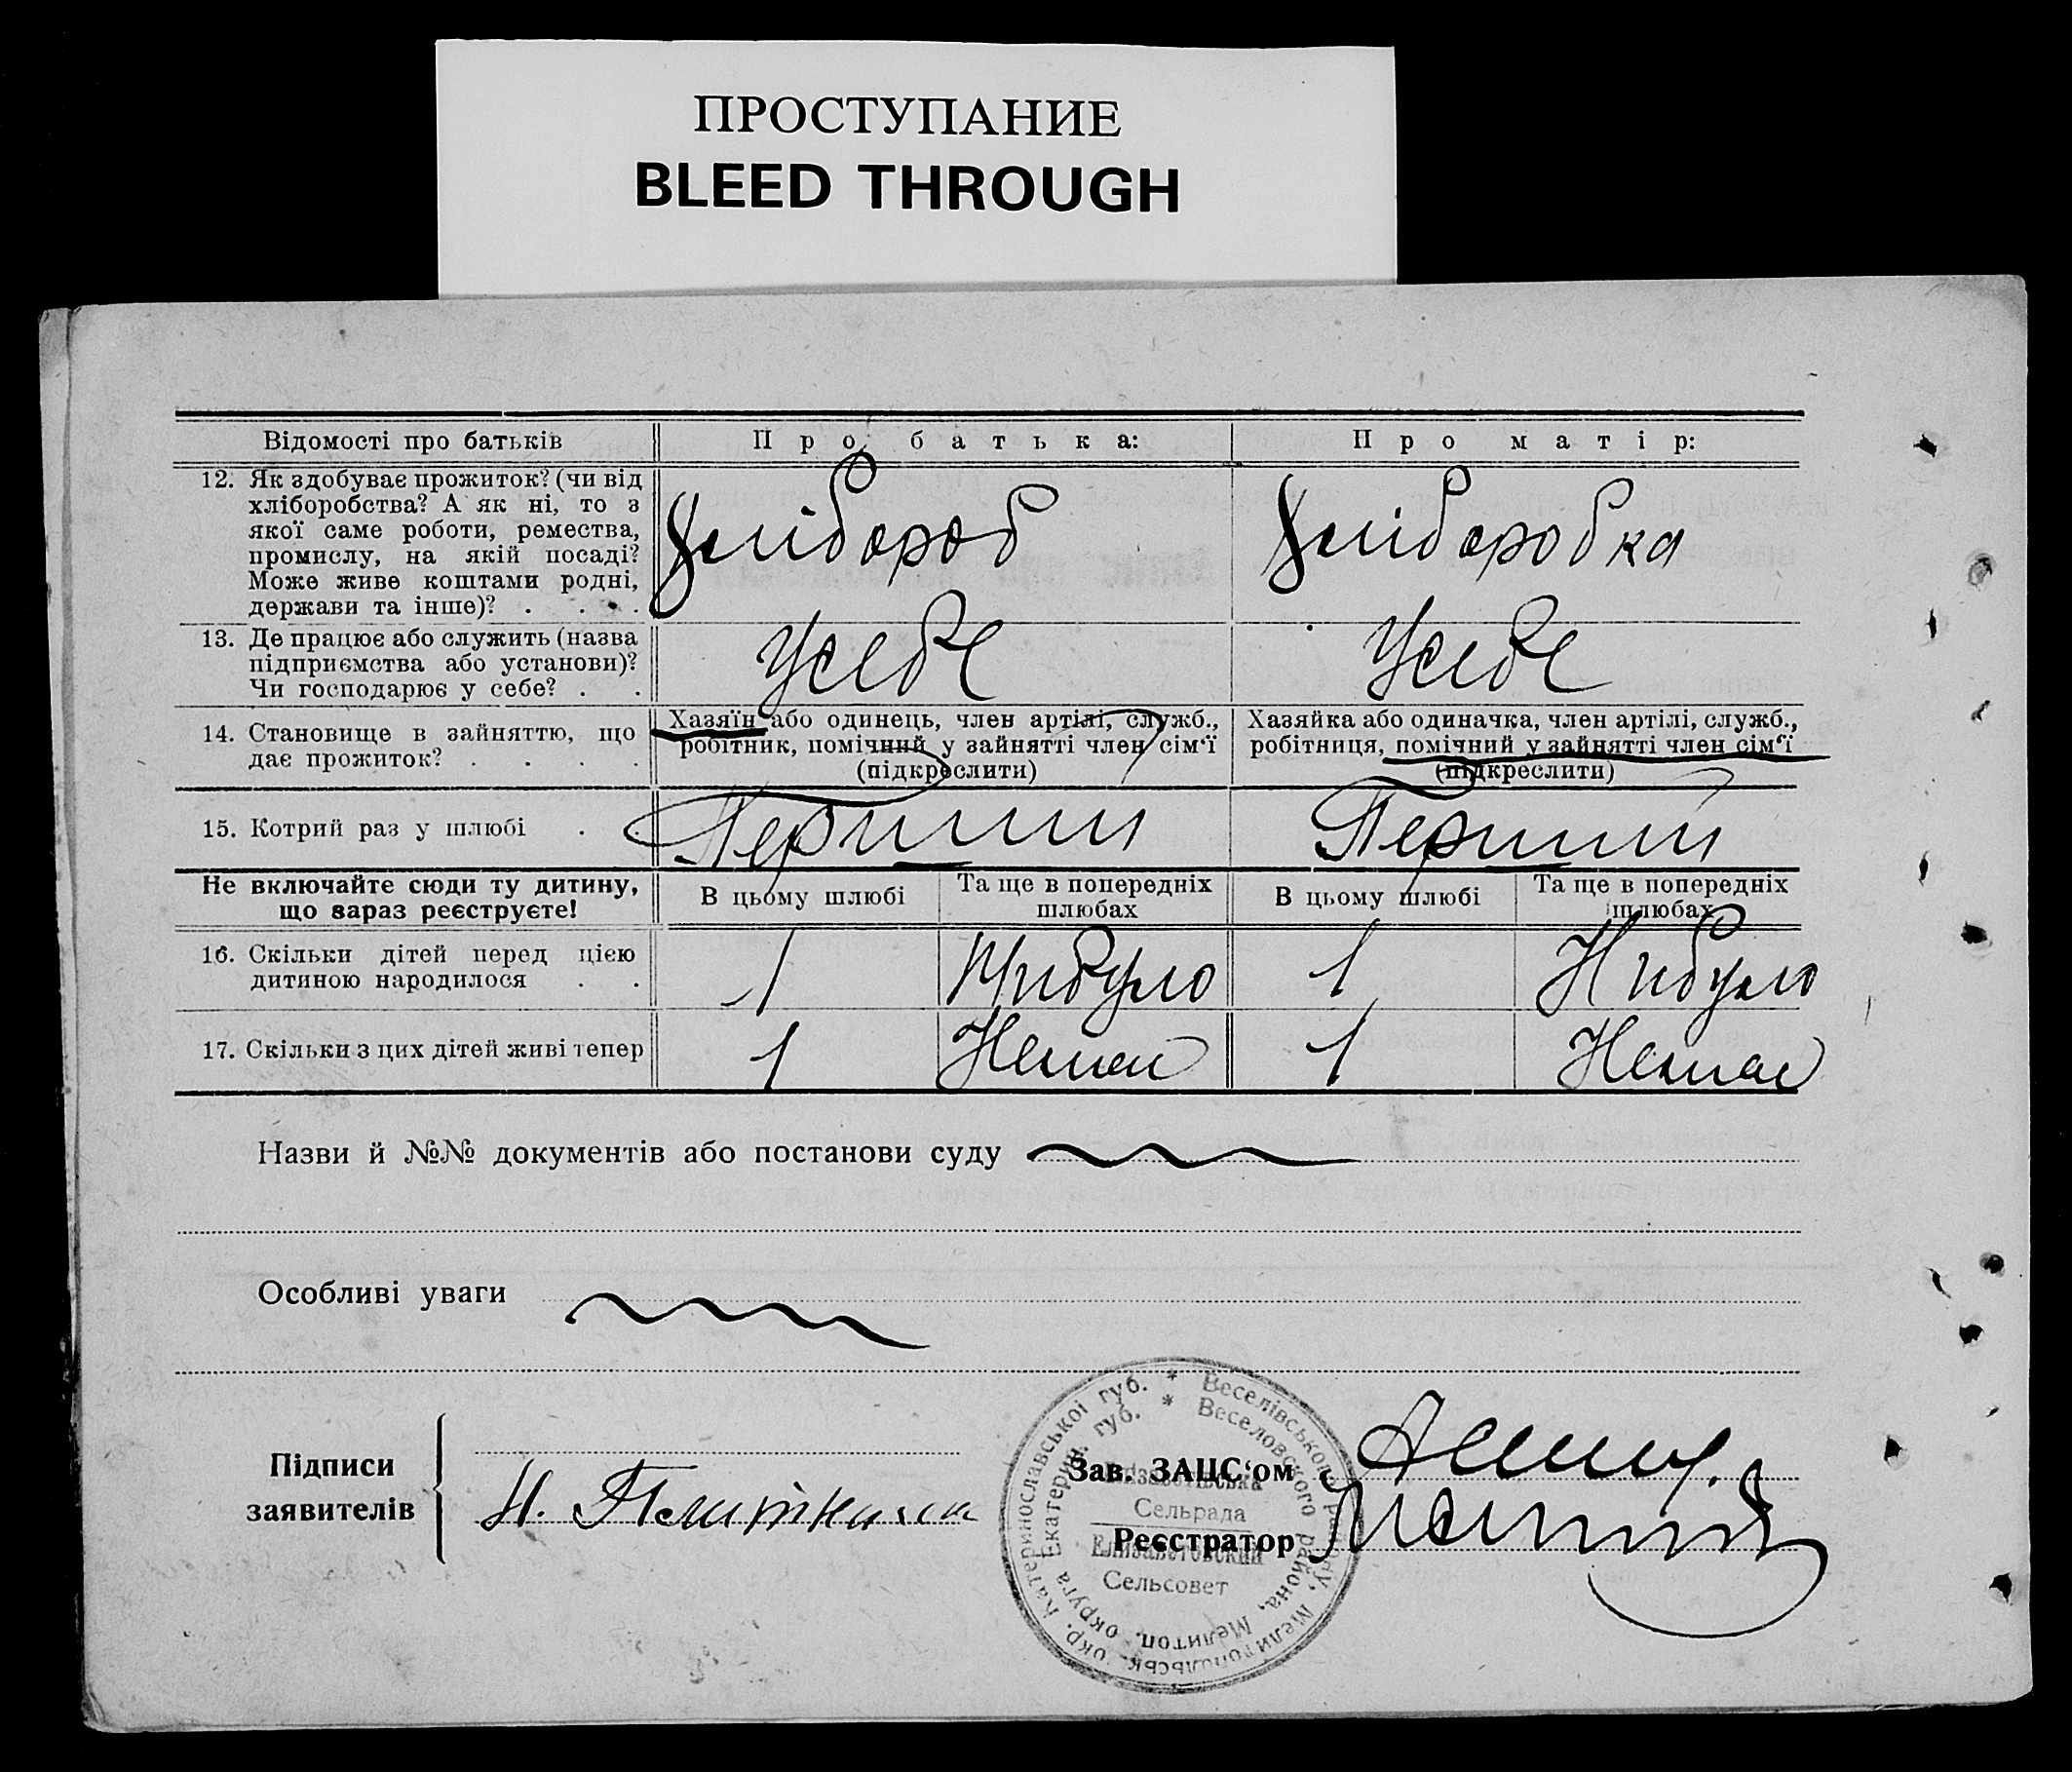 ПРОСТУПАНИЕ
BLEED THROUGH
Відомості про батьків
Про батька:
Про матір:
12. Як здобуває прожиток? (чи від
хліборобства? А як ні, то з
якої саме роботи, ремества,
промислу, на якій посаді?
Може живе коштами родні,
держави та інше)? . . . .
Хлібороб
Хлібороб ка
13. Де працює або служить (назва
підприємства або установи)?
Чи господарює у себе? . .
Усебе
Усебе
14. Становище в зайняттю, що
дає прожиток? . . . .
Хазяїн або одинець, член артілі, служб.,
робітник, помічний у зайнятті член сім'ї
(підкреслити)
Хазяйка або одиначка, член артілі, служб.,
робітниця, помічний у зайнятті член сім'ї
(підкреслити)
15. Котрий раз у шлюбі . .
Перший
Перший
Не включайте сюди ту дитину,
що зараз реєструєте!
В цьому шлюбі
Та ще в попередніх
шлюбах
В цьому шлюбі
Та ще в попередніх
шлюбах
16. Скільки дітей перед цією
дитиною народилося . .
1
Нибуло
1
Нибуло
17. Скільки з цих дітей живі тепер
1
Немає
1
Немає
Назви й №№ документів або постанови суду
Особливі уваги
Підписи
заявителів
Н.
Зав. ЗАЦС'ом
Реєстратор
Катеринославської губ. * Веселівського району, Мелитопільськ. окр.
Екатерин. губ. * Веселовского района, Мелитоп. округа
Єлізаветівська
Сельрада
Елизаветовский
Сельсовет